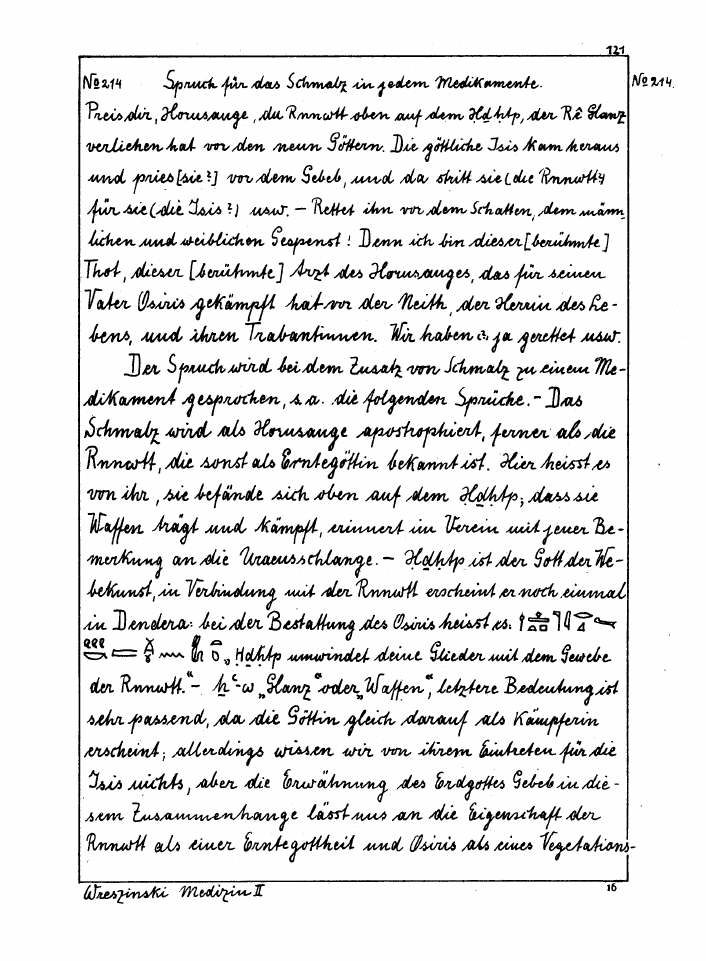 121
No 214 Spruch für das Schmalz in jedem Medikamente. No 214.
Preis dir, Horusauge, du Rnnwtt oben auf dem Ḥḏḥtp, der Rê Glanz
verliehen hat vor den neun Göttern. Die göttliche Isis kam heraus
und pries [sie?] vor dem Gebeb, und da stritt sie (die Rnnwtt?)
für sie (die Isis?) usw. – Rettet ihn vor dem Schatten, dem männ-
lichen und weiblichen Gespenst! Denn ich bin dieser [berühmte]
Thot, dieser [berühmte] Arzt des Horusauges, das für seinen
Vater Osiris gekämpft hat vor der Neith, der Herrin des Le-
bens, und ihren Trabantinnen. Wir haben es ja gerettet usw.
Der Spruch wird bei dem Zusatz von Schmalz zu einem Me-
dikament gesprochen, s.a. die folgenden Sprüche. – Das
Schmalz wird als Horusauge apostrophiert, ferner als die
Rnnwtt, die sonst als Erntegöttin bekannt ist. Hier heisst es
von ihr, sie befände sich oben auf dem Ḥḏḥtp; dass sie
Waffen trägt und kämpft, erinnert im Verein mit jener Be-
merkung an die Uraeusschlange. – Ḥḏḥtp ist der Gott der We-
bekunst, in Verbindung mit der Rnnwtt erscheint er noch einmal
in Dendera: bei der Bestattung des Osiris heisst es:
„Ḥḏḥtp umwindet deine Glieder mit dem Gewebe
der Rnnwtt.“ – ḫʿ-w „Glanz“ oder „Waffen“, letztere Bedeutung ist
sehr passend, da die Göttin gleich darauf als Kämpferin
erscheint; allerdings wissen wir von ihrem Eintreten für die
Isis nichts, aber die Erwähnung des Erdgottes Gebeb in die-
sem Zusammenhange lässt uns an die Eigenschaft der
Rnnwtt als einer Erntegottheit und Osiris als eines Vegetations-
Wreszinski Medizin II 16